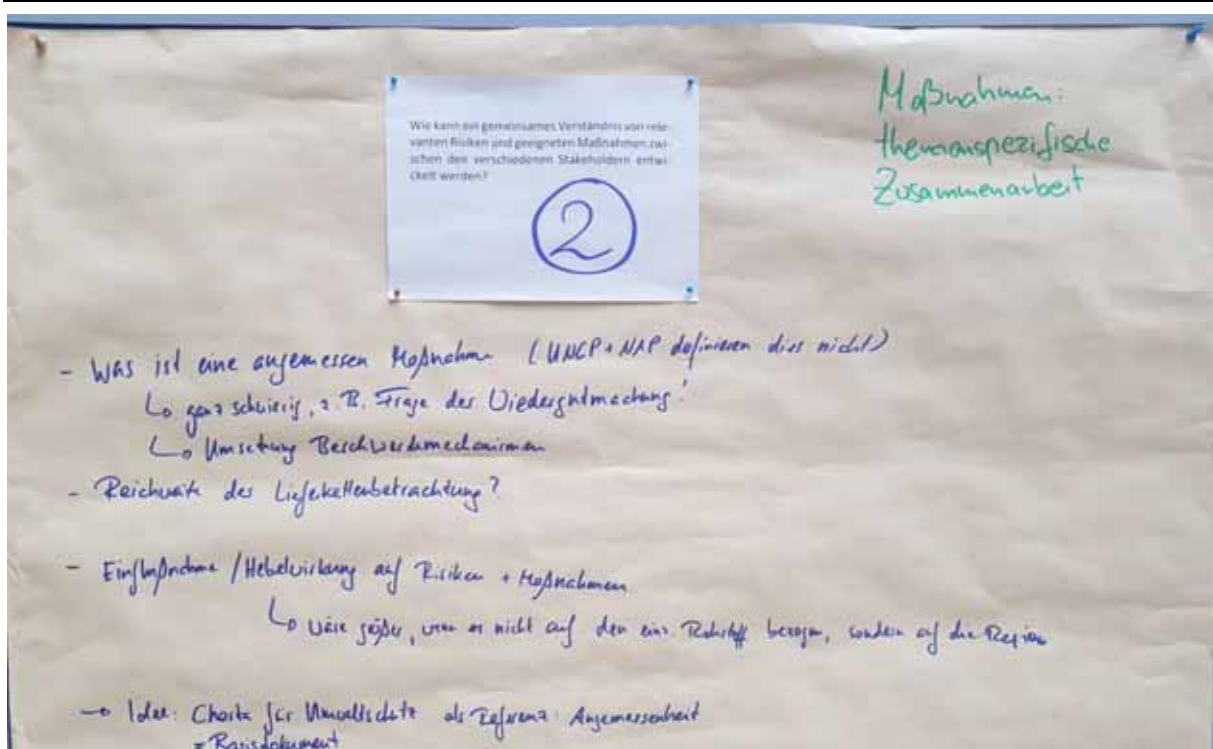 Wie kann ein gemeinsames Verständnis von rele-
vanten Risiken und geeigneten Maßnahmen zwi-
schen den verschiedenen Stakeholdern entwi-
ckelt werden?
2
Maßnahmen:
themenspezifische
Zusammenarbeit
- Was ist eine angemessen Maßnahme (UNGP + NAP definieren dies nicht)
↳ ganz schwierig, z.B. Frage der Wiedergutmachung!
↳ Umsetzung Beschwerdemechanismen
- Reichweite der Lieferkettenbetrachtung?
- Einflußnahme / Hebelwirkung auf Risiken + Maßnahmen
↳ wäre größer, wenn es nicht auf den einz. Rohstoff bezogen, sondern auf die Region
→ Idee: Charta für Umweltschutz als Referenz: Angemessenheit
= Basisdokument